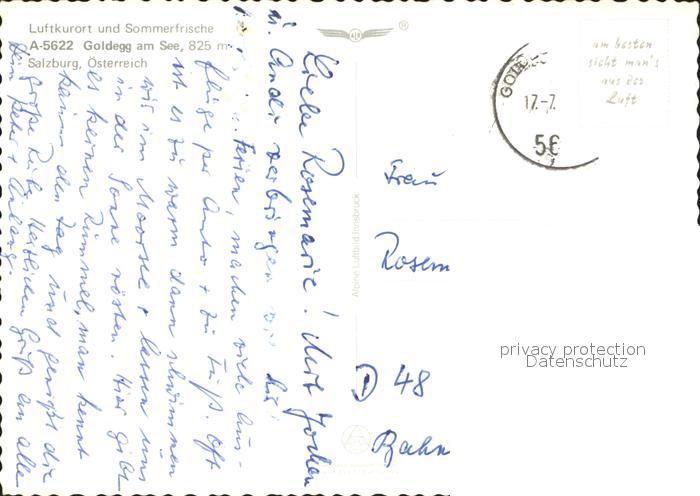 Luftkurort und Sommerfrische
A-5622 Goldegg am See, 825 m
Salzburg, Österreich
Liebe Rosemarie! Mit Jochen
u. Andr verbringen wir hie
Ferien, machen viele Aus-
flüge per Auto + zu Fuß. Oft
ist es zu warm dann schwimmen
wir im Moorsee + lassen uns
in der Sonne rösten. Hier gibt
es keinen Rummel, man kennt
keinen den Tag und genießt die
große Ruhe. Herzlichen Gruß an alle
Alpine Luftbild Innsbruck
GOLD
17.-7.
56
am besten
sieht man's
aus der
Luft
Frau
Rosem
D 48
Bahn
privacy protection
Datenschutz